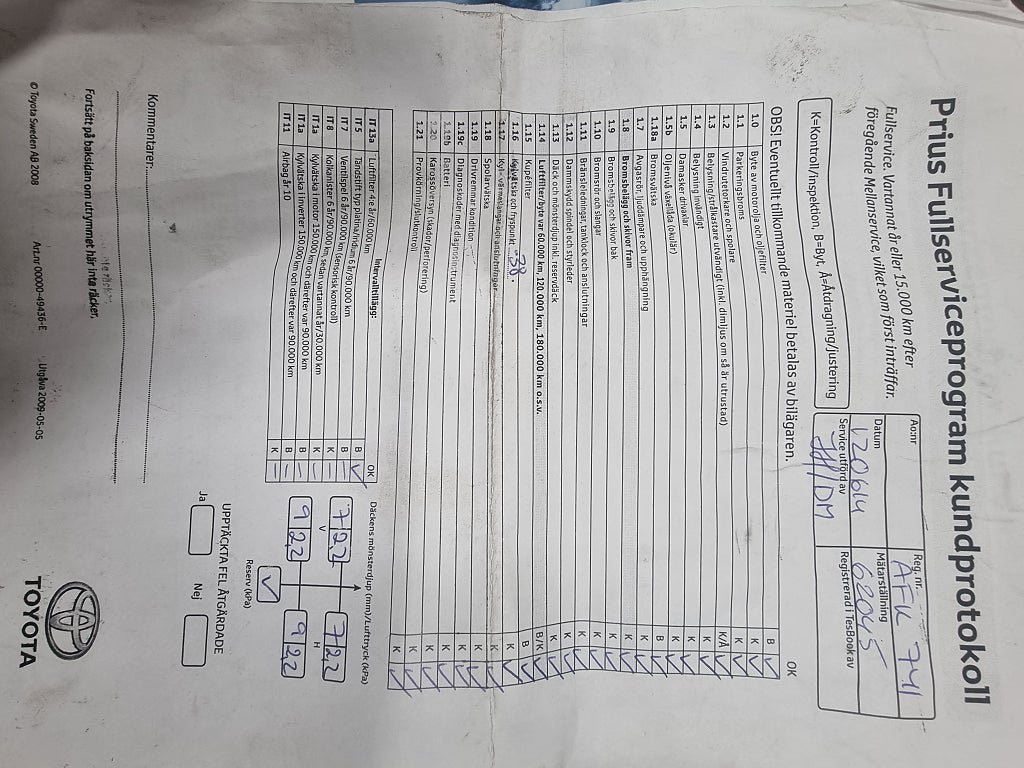 Prius Fullserviceprogram kundprotokoll
Fullservice. Vartannat år eller 15.000 km efter
föregående Mellanservice, vilket som först inträffar.
Ao:nr
Reg. nr.
AFK 741
Datum
120614
Mätarställning
62045
Service utförd av
Registrerad i TesBook av
K=Kontroll/inspektion, B=Byt, Å=Åtdragning/justering
OBS! Eventuellt tillkommande materiel betalas av bilägaren.
OK
1.0 Byte av motorolja och oljefilter B ✓
1.1 Parkeringsbroms K ✓
1.2 Vindrutetorkare och spolare K ✓
1.3 Belysning/strålkastare utvändigt (inkl. dimljus om så är utrustad) K/Å ✓
1.4 Belysning invändigt K ✓
1.5 Damasker drivaxlar K ✓
1.5b Oljenivå växellåda (okulär) K ✓
1.18a Bromsvätska B ✓
1.7 Avgasrör, ljuddämpare och upphängning K ✓
1.8 Bromsbelägg och skivor fram K ✓
1.9 Bromsbelägg och skivor bak K ✓
1.10 Bromsrör och slangar K ✓
1.11 Bränsleledningar, tanklock och anslutningar K ✓
1.12 Dammskydd spindel och styrleder K ✓
1.13 Däck och mönsterdjup inkl. reservdäck K ✓
1.14 Luftfilter/byte var 60.000 km, 120.000 km, 180.000 km o.s.v. B/K ✓
1.15 Kupéfilter B ✓
1.16 Kylvätska och fryspunkt -38. K ✓
1.17 Kyl-, värmeslangar och anslutningar K ✓
1.18 Spolarvätska K ✓
1.19 Drivremmar kondition K ✓
1.19c Diagnoskoder med diagnosinstrument K ✓
1.19b Batteri K ✓
1.20 Kaross översyn (skador/perforering) K ✓
1.21 Provkörning/slutkontroll K ✓
Intervalltillägg:
OK
IT 13a Luftfilter 4:e år/60.000 km B ✓
IT 5 Tändstift typ platina/iridium 6 år/90.000 km B –
IT 7 Ventilspel 6 år/90.000 km (sensorisk kontroll) K –
IT 8 Kolkanister 6 år/90.000 km, sedan vartannat år/30.000 km K –
IT1a Kylvätska i motor 150.000 km och därefter var 90.000 km B –
IT1a Kylvätska i inverter 150.000 km och därefter var 90.000 km B –
IT 11 Airbag år 10 K –
Däckens mönsterdjup (mm)/Lufttryck (kPa)
7 2,2
7 2,2
V
H
9 2,2
9 2,2
Reserv (kPa)
✓
UPPTÄCKTA FEL ÅTGÄRDADE
Ja
Nej
Kommentarer
Fortsätt på baksidan om utrymmet här inte räcker.
© Toyota Sweden AB 2008
Art.nr 00000-49436-E
Utgåva 2009-05-05
TOYOTA